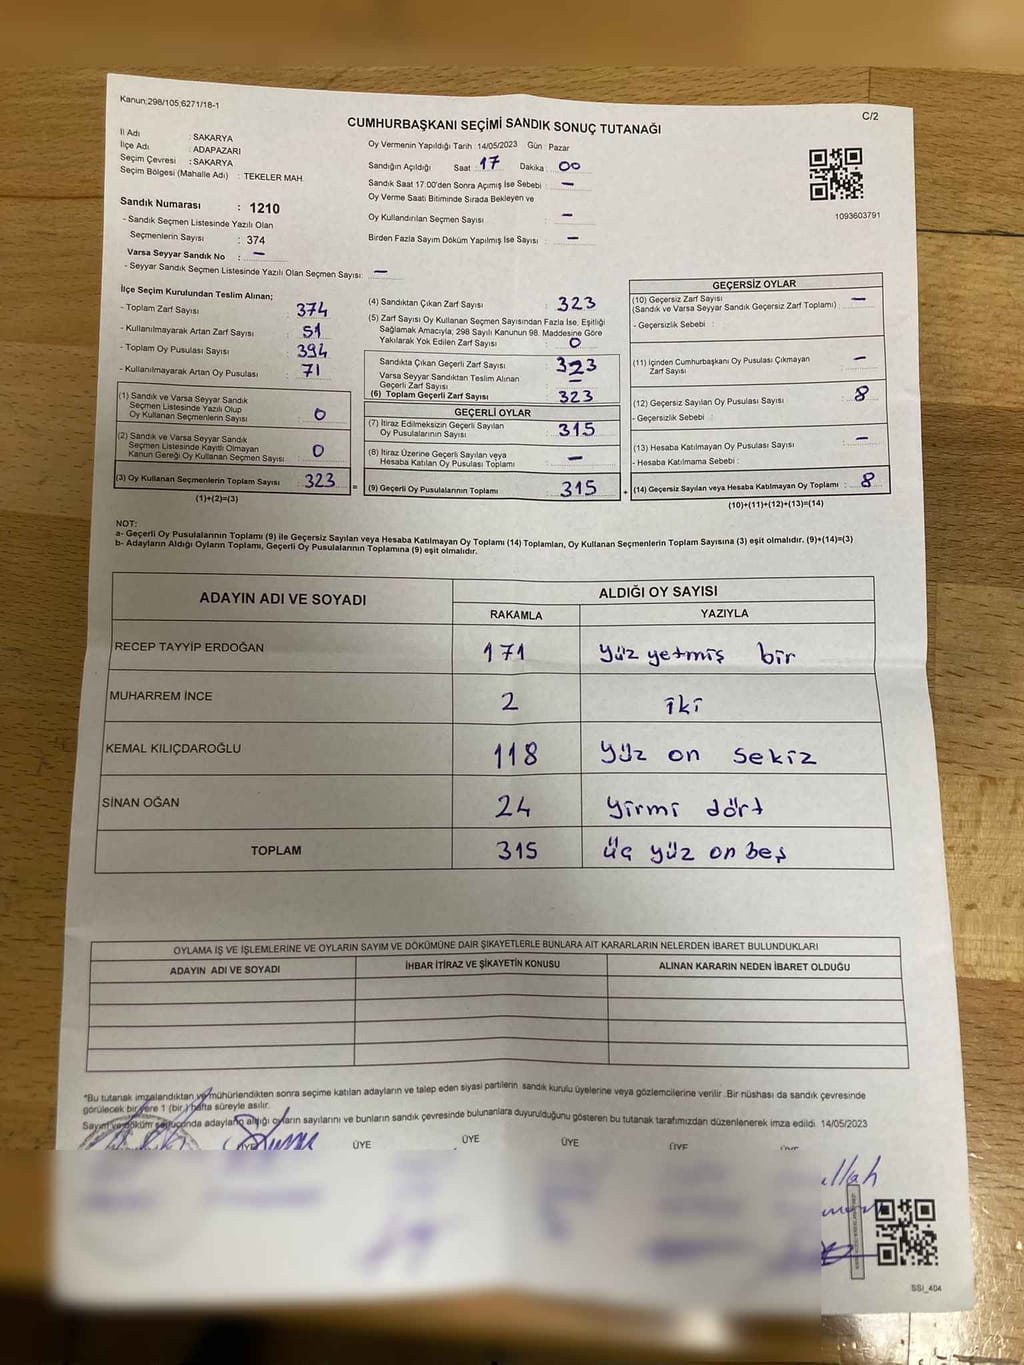 Kanun;298/105,6271/18-1
C/2
CUMHURBAŞKANI SEÇİMİ SANDIK SONUÇ TUTANAĞI
İl Adı : SAKARYA
İlçe Adı : ADAPAZARI
Seçim Çevresi : SAKARYA
Seçim Bölgesi (Mahalle Adı) : TEKELER MAH.
Oy Vermenin Yapıldığı Tarih : 14/05/2023 Gün : Pazar
Sandığın Açıldığı Saat : 17 Dakika : 00
Sandık Saat 17.00'den Sonra Açımış İse Sebebi : —
Oy Verme Saati Bitiminde Sırada Bekleyen ve
Oy Kullandırılan Seçmen Sayısı : —
Birden Fazla Sayım Döküm Yapılmış İse Sayısı : —
1093603791
Sandık Numarası : 1210
- Sandık Seçmen Listesinde Yazılı Olan
Seçmenlerin Sayısı : 374
Varsa Seyyar Sandık No : —
- Seyyar Sandık Seçmen Listesinde Yazılı Olan Seçmen Sayısı: —
İlçe Seçim Kurulundan Teslim Alınan;
- Toplam Zarf Sayısı : 374
- Kullanılmayarak Artan Zarf Sayısı : 51
- Toplam Oy Pusulası Sayısı : 394
- Kullanılmayarak Artan Oy Pusulası : 71
(1) Sandık ve Varsa Seyyar Sandık
Seçmen Listesinde Yazılı Olup
Oy Kullanan Seçmenlerin Sayısı : 0
(2) Sandık ve Varsa Seyyar Sandık
Seçmen Listesinde Kayıtlı Olmayan
Kanun Gereği Oy Kullanan Seçmen Sayısı : 0
(3) Oy Kullanan Seçmenlerin Toplam Sayısı : 323
(1)+(2)=(3)
(4) Sandıktan Çıkan Zarf Sayısı : 323
(5) Zarf Sayısı Oy Kullanan Seçmen Sayısından Fazla İse, Eşitliği
Sağlamak Amacıyla; 298 Sayılı Kanunun 98. Maddesine Göre
Yakılarak Yok Edilen Zarf Sayısı : 0
Sandıkta Çıkan Geçerli Zarf Sayısı : 323
Varsa Seyyar Sandıktan Teslim Alınan
Geçerli Zarf Sayısı : —
(6) Toplam Geçerli Zarf Sayısı : 323
GEÇERLİ OYLAR
(7) İtiraz Edilmeksizin Geçerli Sayılan
Oy Pusulalarının Sayısı : 315
(8) İtiraz Üzerine Geçerli Sayılan veya
Hesaba Katılan Oy Pusulası Toplamı : —
= (9) Geçerli Oy Pusulalarının Toplamı : 315
GEÇERSİZ OYLAR
(10) Geçersiz Zarf Sayısı : —
(Sandık ve Varsa Seyyar Sandık Geçersiz Zarf Toplamı)
- Geçersizlik Sebebi :
(11) İçinden Cumhurbaşkanı Oy Pusulası Çıkmayan
Zarf Sayısı : —
(12) Geçersiz Sayılan Oy Pusulası Sayısı : 8
- Geçersizlik Sebebi :
(13) Hesaba Katılmayan Oy Pusulası Sayısı : —
- Hesaba Katılmama Sebebi :
+ (14) Geçersiz Sayılan veya Hesaba Katılmayan Oy Toplamı : 8
(10)+(11)+(12)+(13)=(14)
NOT:
a- Geçerli Oy Pusulalarının Toplamı (9) ile Geçersiz Sayılan veya Hesaba Katılmayan Oy Toplamı (14) Toplamları, Oy Kullanan Seçmenlerin Toplam Sayısına (3) eşit olmalıdır. (9)+(14)=(3)
b- Adayların Aldığı Oyların Toplamı, Geçerli Oy Pusulalarının Toplamına (9) eşit olmalıdır.
ADAYIN ADI VE SOYADI ALDIĞI OY SAYISI
RAKAMLA YAZIYLA
RECEP TAYYİP ERDOĞAN 171 yüz yetmiş bir
MUHARREM İNCE 2 iki
KEMAL KILIÇDAROĞLU 118 yüz on sekiz
SİNAN OĞAN 24 yirmi dört
TOPLAM 315 üç yüz on beş
OYLAMA İŞ VE İŞLEMLERİNE VE OYLARIN SAYIM VE DÖKÜMÜNE DAİR ŞİKAYETLERLE BUNLARA AİT KARARLARIN NELERDEN İBARET BULUNDUKLARI
ADAYIN ADI VE SOYADI İHBAR İTİRAZ VE ŞİKAYETİN KONUSU ALINAN KARARIN NEDEN İBARET OLDUĞU
*Bu tutanak imzalandıktan ve mühürlendikten sonra seçime katılan adayların ve talep eden siyasi partilerin sandık kurulu üyelerine veya gözlemcilerine verilir. Bir nüshası da sandık çevresinde
görülecek bir yere 1 (bir) hafta süreyle asılır.
Sayım ve döküm sonucunda adayların aldığı oyların sayılarını ve bunların sandık çevresinde bulunanlara duyurulduğunu gösteren bu tutanak tarafımızdan düzenlenerek imza edildi. 14/05/2023
ÜYE ÜYE ÜYE ÜYE
SSI_404